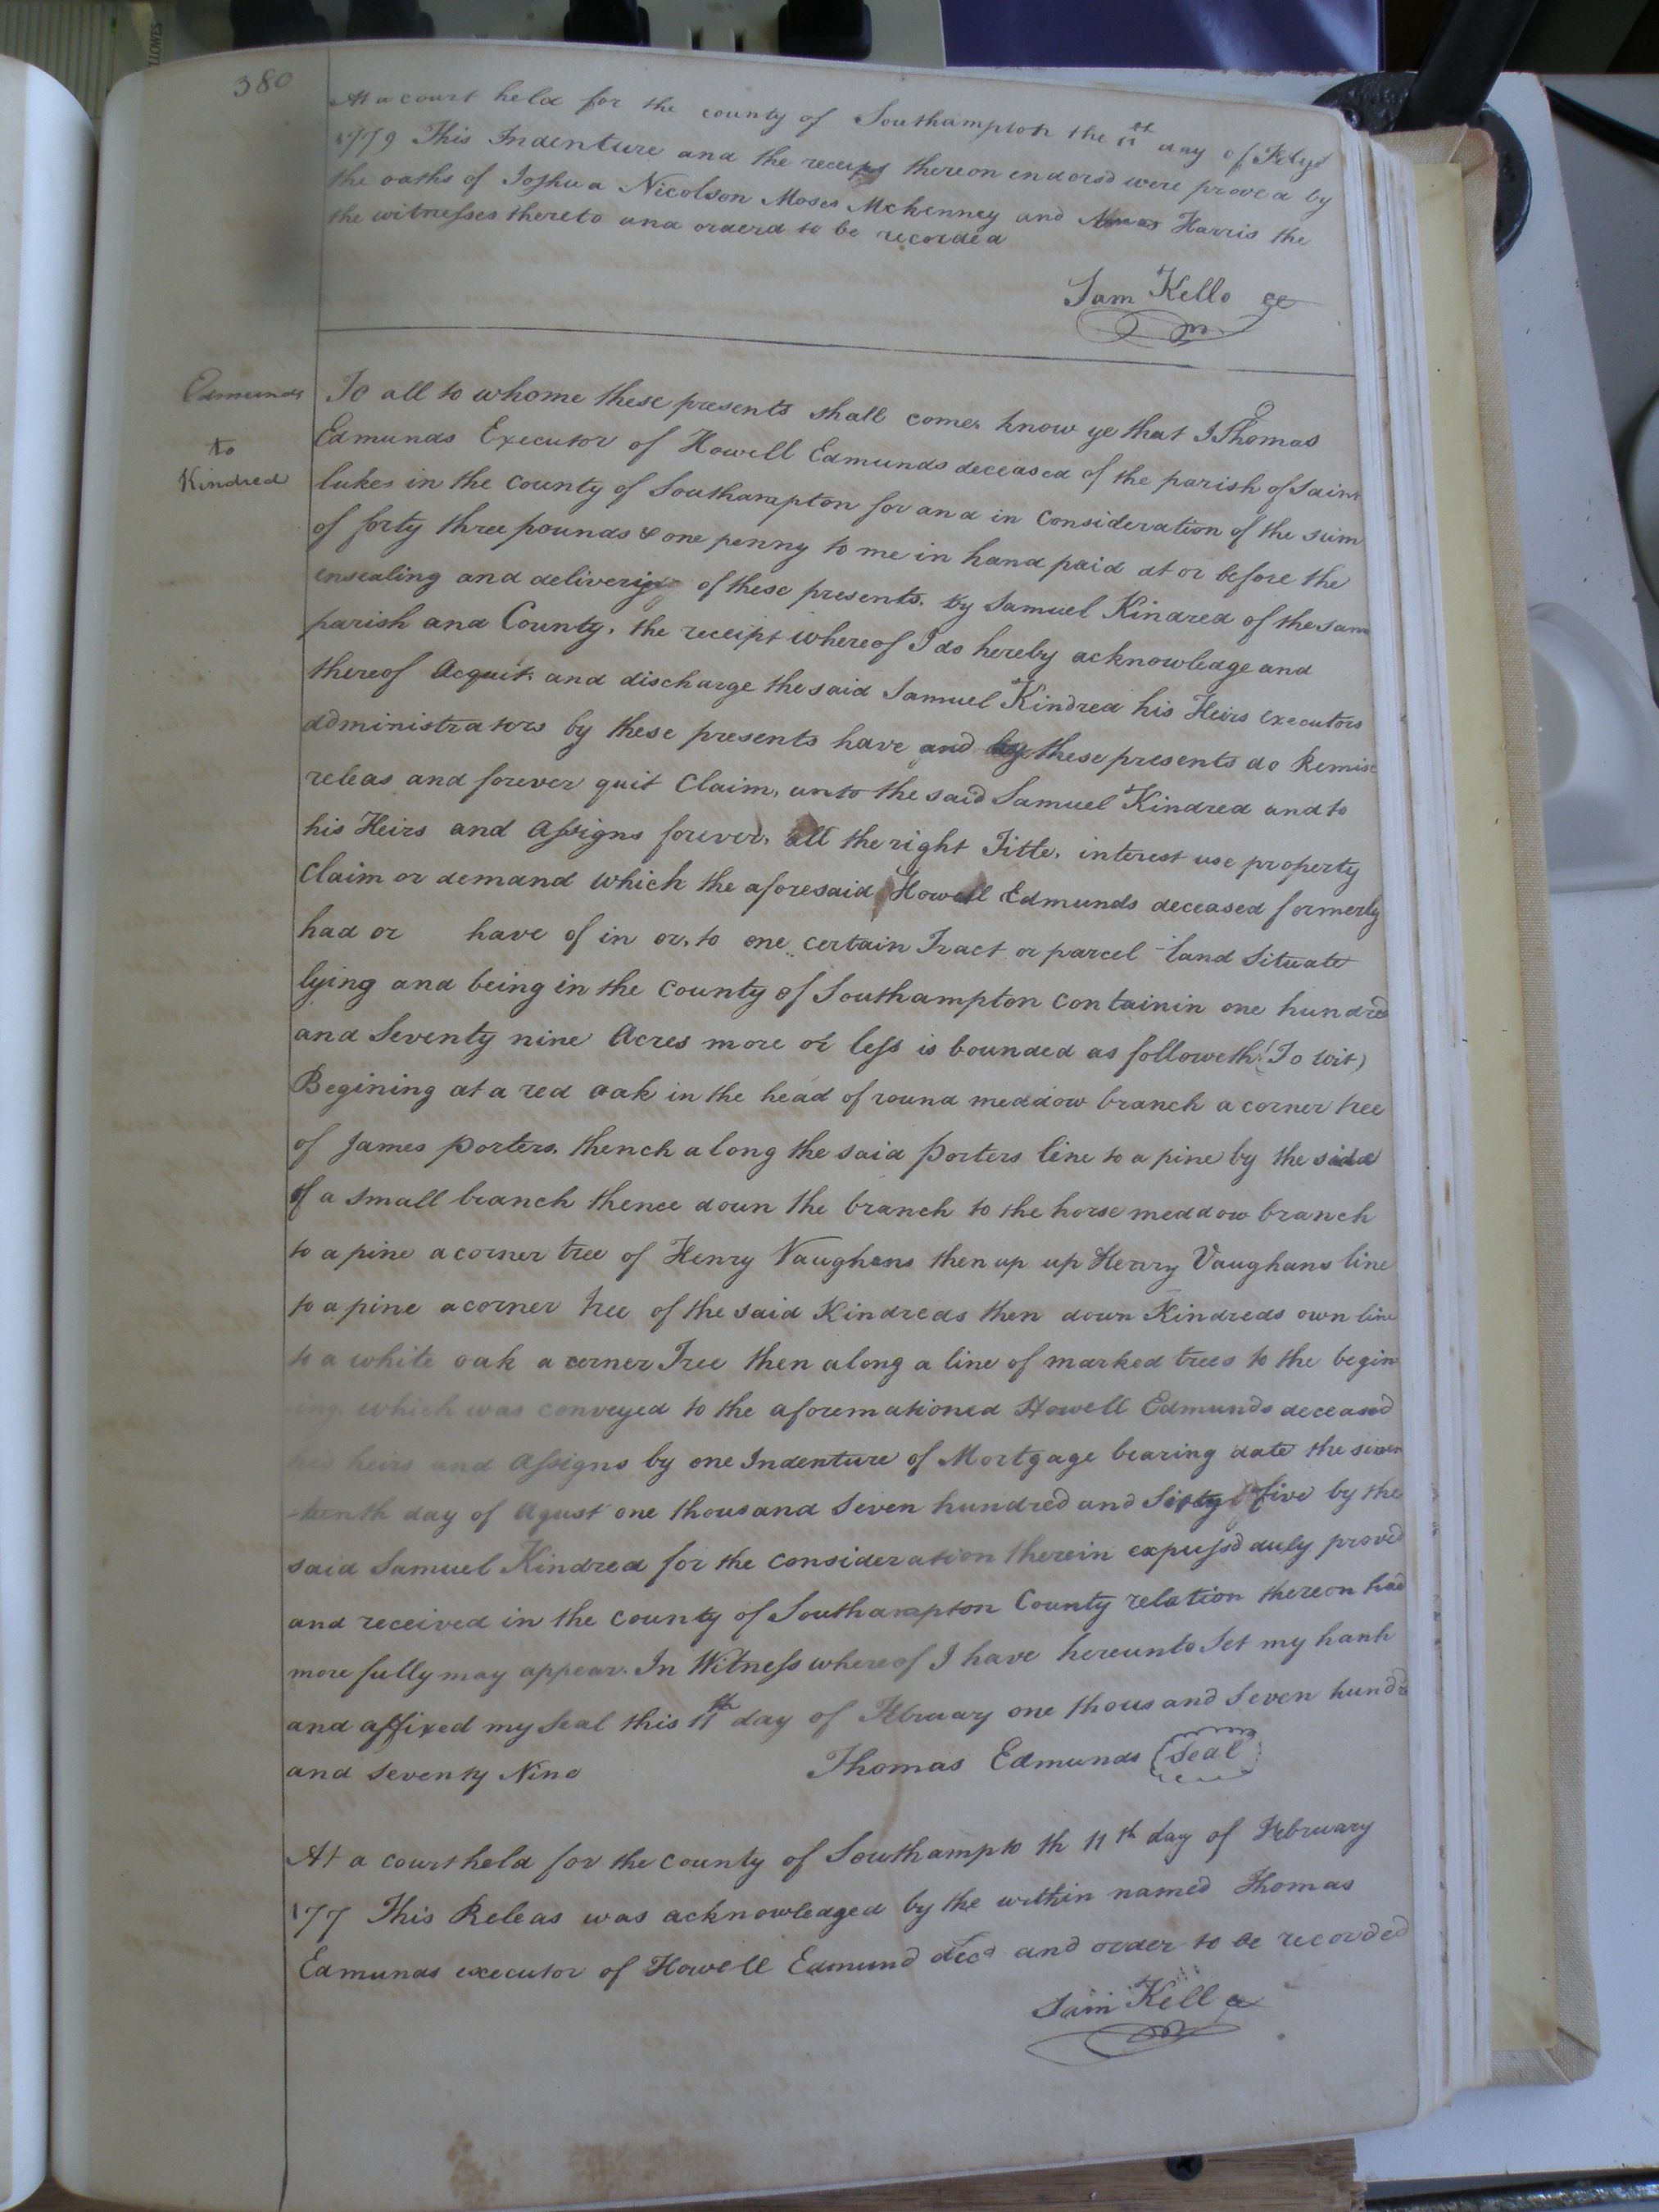 380
At a court held for the county of Southampton the 11th day of
1779 This Indenture and the receipt thereon endorsd were proved by
the oaths of Joshua Nicolson Moses Mckenney and Amos Harris the
the witnesses thereto and orderd to be recorded
Sam Kello cc
Edmunds
to
Kindred
To all to whome these presents shall come, know ye that I Thomas
Edmunds Executor of Howell Edmunds deceased of the parish of Saint
lukes in the county of Southampton for and in Consideration of the sum
of forty three pounds & one penny to me in hand paid at or before the
ensealing and delivering of these presents. by Samuel Kindred of the same
parish and County, the receipt whereof I do hereby acknowledge and
thereof Acquit and discharge the said Samuel Kindred his Heirs executors
administrators by these presents have and by these presents do Remise
releas and forever quit Claim, unto the said Samuel Kindred and to
his Heirs and Assigns forever, all the right Title, interest use property
Claim or demand which the aforesaid Howell Edmunds deceased formerly
had or have of in or, to one certain Tract or parcel land Situate
lying and being in the county of Southampton containin one hundred
and Seventy nine Acres more or less is bounded as followeth (To wit)
Begining at a red oak in the head of round meddow branch a corner tree
of James porters, thench along the said porters line to a pine by the side
of a small branch thence down the branch to the horse meddow branch
to a pine a corner tree of Henry Vaughans then up up Henry Vaughans line
to a pine a corner tree of the said Kindreds then down Kindreds own line
to a white oak a corner Tree then along a line of marked trees to the begin
ing which was conveyed to the aforemationed Howell Edmunds deceased
his heirs and Assigns by one Indenture of Mortgage bearing date the
-teenth day of Agust one thousand Seven hundred and Sixty five by the
said Samuel Kindred for the consideration therein expressd duly proved
and received in the county of Southampton County relation thereon had
more fully may appear. In Witness whereof I have hereunto Set my hanh
and affixed my Seal this 11th day of Februay one thousand Seven hundr
and Seventy Nine
Thomas Edmunds Seal
At a court held for the county of Southampto th 11th day of February
177 This Releas was acknowledged by the within named Thomas
Edmunds executor of Howell Edmund decd and order to be recorded
Sam Kell